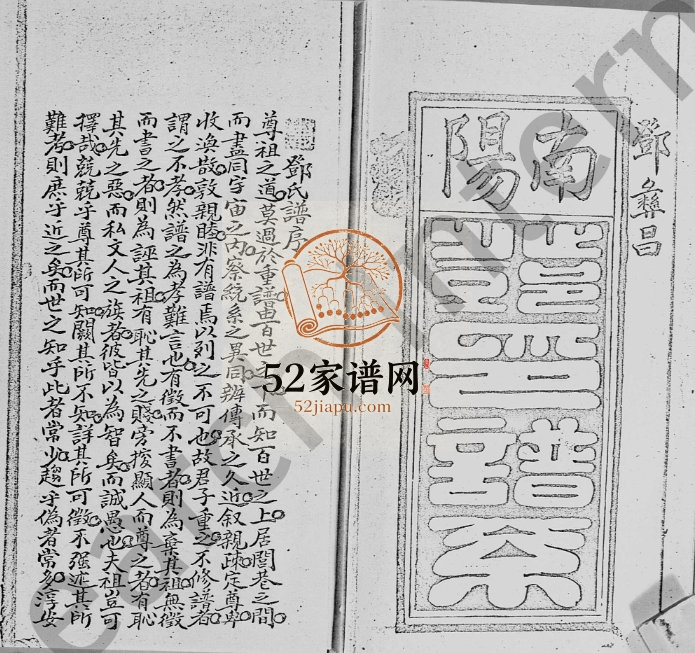 鄧彝昌
南陽
鄧氏譜序
尊祖之道莫過於重譜由百世之下而知百世之上居閭巷之間
而盡同宇宙之内察統系之異同辨傳承之久近叙親疎定尊卑
收渙散敦親睦非有譜焉以列之不可也故君子重之不修譜者
謂之不孝然譜之為孝難言也有徵而不書者則為棄其祖無徵
而書之者則為誣其祖有恥其先之賤旁援顯人而尊之者有恥
其先之惡而私文人之族者彼皆以為智矣而誠愚也夫祖豈可
擇哉兢兢乎尊其所可知闕其所不知詳其所可徵不强述其所
難考則庶乎近之矣而世之知乎此者常少趨乎偽者常多淳安
52家谱网
52jiapu.com